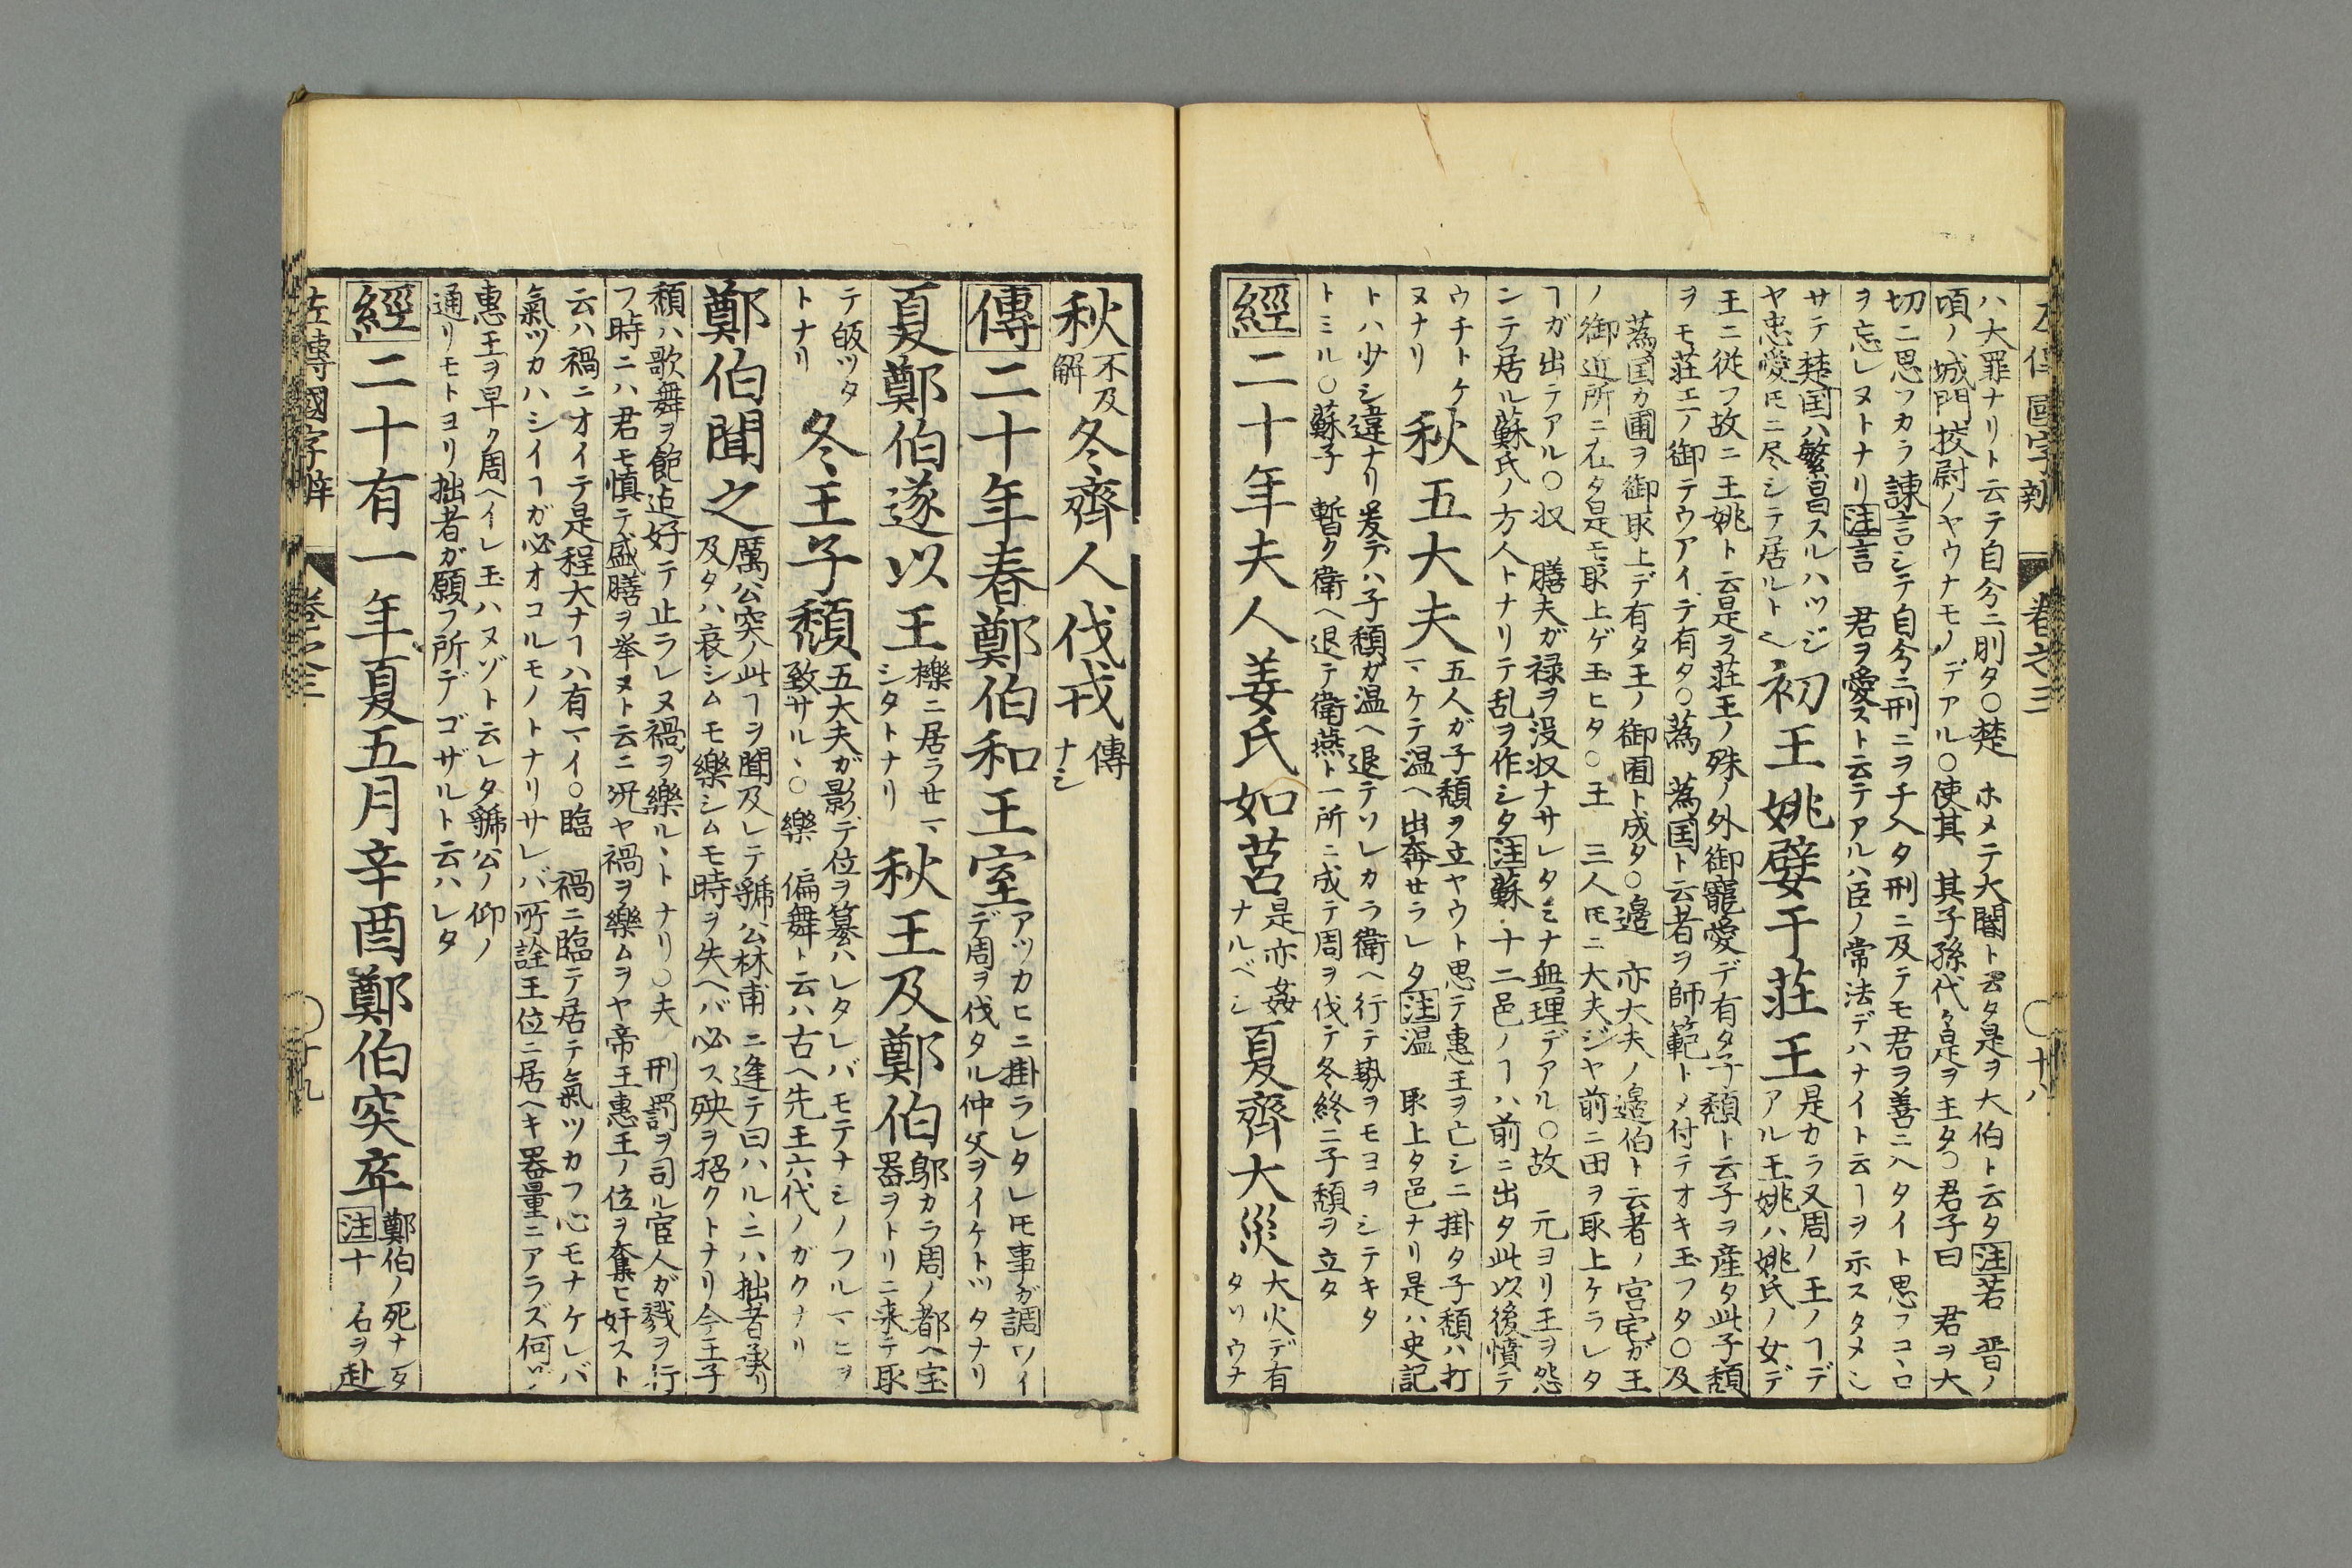 左傳國字辨 卷之三 〇十八
ハ大罪ナリト云テ自分ニ刖タ〇楚 ホメテ大閽ト云タ是ヲ大伯ト云タ注若 晋ノ
頃ノ城門挍尉ノヤウナモノデアル〇使其 其子孫代々是ヲ主タ〇君子曰 君ヲ大
切ニ思フカラ諌言シテ自分ニ刑ニヲチ入タ刑ニ及テモ君ヲ善ニハタイト思フコヽロ
ヲ忘レヌトナリ注言 君ヲ愛スト云テアルハ臣ノ常法デハナイト云ヿヲ示スタメ
サテ楚国ハ繁昌スルハツジ
ヤ忠愛モニ尽シテ居ルト
初王姚嬖于荘王
是カラ又周ノ王ノヿデ
アル王姚ハ姚氏ノ女デ
王ニ従フ故ニ王姚ト云是ヲ荘王ノ殊ノ外御寵愛デ有タ子頽ト云子ヲ産タ此子頽
ヲモ荘王ノ御テウアイデ有タ〇蔿 蔿国ト云者ヲ師範トメ付テオキ玉フタ〇及
蔿国カ圃ヲ御取上デ有タ王ノ御囿ト成タ〇邉 亦大夫ノ邉伯ト云者ノ宮宅ガ王
ノ御近所ニ在タ是モ取上ゲ玉ヒタ〇王 三人トモニ大夫ジヤ前ニ田ヲ取上ケラレタ
ヿガ出テアル〇収 膳夫ガ禄ヲ没収ナサレタミナ無理デアル〇故 元ヨリ王ヲ怨
ンテ居ル蘇氏ノ方人トナリテ乱ヲ作シタ注蘇 十二邑ノヿハ前ニ出タ此以後憤テ
ウチトケ
ヌナリ
秋五大夫
五人ガ子頽ヲ立ヤウト思テ惠王ヲ亡シニ掛タ子頽ハ打
マケテ温ヘ出奔セラレタ注温 取上タ邑ナリ是ハ史記
トハ少シ違ナリ爰デハ子頽ガ温ヘ退テソレカラ衛ヘ行テ勢ヲモヨヲシテキタ
トミル〇蘇子 暫ク衛ヘ退テ衛燕ト一所ニ成テ周ヲ伐テ冬終ニ子頽ヲ立タ
經二十年夫人姜氏如莒
是亦姦
ナルベシ
夏齊大災
大火デ有
タリウナ
秋
不及
解
冬齊人伐戎
傳
ナシ
傳二十年春鄭伯和王室
アツカヒニ掛ラレタレ𪜈事ガ調ワイ
デ周ヲ伐タル仲父ヲイケトツタナリ
夏鄭伯遂以王
櫟ニ居ラセマ
シタトナリ
秋王及鄭伯
鄔カラ周ノ都ヘ宝
器ヲトリニ来テ取
テ皈ツタ
トナリ
冬王子頽
五大夫ガ影デ位ヲ簒ハレタレバモテナシノフルマヒヲ
致サルヽ〇樂 偏舞ト云ハ古ヘ先王六代ノガクナリ
鄭伯聞之
厲公突ノ此ヿヲ聞及レテ虢公林甫ニ逢テ曰ハルヽニハ拙者承リ
及タハ哀シムモ樂シムモ時ヲ失ヘバ必ス殃ヲ招クトナリ今王子
頽ハ歌舞ヲ飽迠好テ止ラレヌ禍ヲ樂ルヽトナリ〇夫 刑罰ヲ司ル官人ガ戮ヲ行
フ時ニハ君モ慎テ盛膳ヲ挙ヌト云ニ况ヤ禍ヲ樂ムヲヤ帝王惠王ノ位ヲ奪ヒ奸スト
云ハ禍ニオイテ是程大ナヿハ有マイ〇臨 禍ニ臨テ居テ氣ツカフ心モナケレバ
氣ヅカハシイヿガ必オコルモノトナリサレバ所詮王位ニ居ヘキ器量ニアラズ何
惠王ヲ早ク周ヘイレ玉ハヌゾト云レタ虢公ノ仰ノ
通リモトヨリ拙者ガ願フ所デゴザルト云ハレタ
經二十有一年夏五月辛酉鄭伯突卒
鄭伯ノ死ナレタ
注十 名ヲ赴
左傳國字辨 卷之三 〇十九